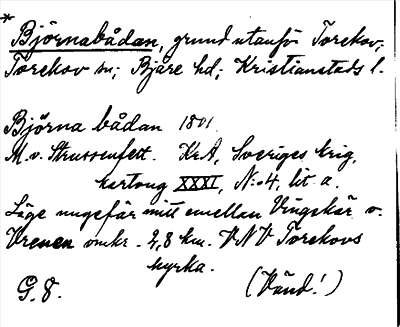 *
Björnabådan, grund utanför Torekov;
Torekov sn; Bjäre hd; Kristianstads l.
Björna bådan 1801.
M. v. Strussenfelt. KrA, Sveriges krig,
kartong XXXI, N:o 4, lit a.
Läge ungefär mitt emellan Vingskär o.
Vrenen omkr. 2,8 km. VNV Torekovs
kyrka.
G. 8. (Vänd!)